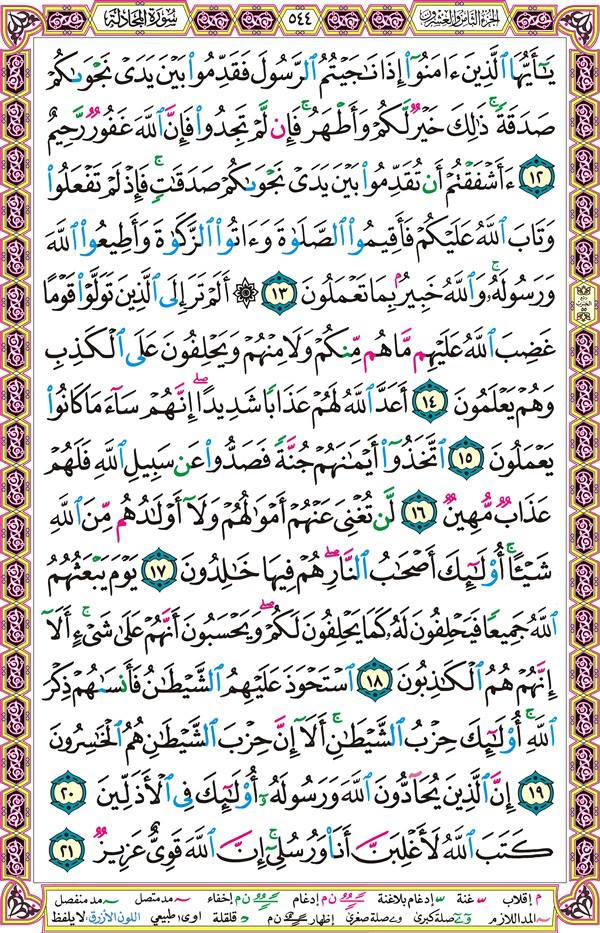 الجزء الثامن والعشرون
٥٤٤
سورة المجادلة
يَٰٓأَيُّهَا ٱلَّذِينَ ءَامَنُوٓا۟ إِذَا نَٰجَيْتُمُ ٱلرَّسُولَ فَقَدِّمُوا۟ بَيْنَ يَدَىْ نَجْوَىٰكُمْ
صَدَقَةً ۚ ذَٰلِكَ خَيْرٌ لَّكُمْ وَأَطْهَرُ ۚ فَإِن لَّمْ تَجِدُوا۟ فَإِنَّ ٱللَّهَ غَفُورٌ رَّحِيمٌ
١٢ ءَأَشْفَقْتُمْ أَن تُقَدِّمُوا۟ بَيْنَ يَدَىْ نَجْوَىٰكُمْ صَدَقَٰتٍ ۚ فَإِذْ لَمْ تَفْعَلُوا۟
وَتَابَ ٱللَّهُ عَلَيْكُمْ فَأَقِيمُوا۟ ٱلصَّلَوٰةَ وَءَاتُوا۟ ٱلزَّكَوٰةَ وَأَطِيعُوا۟ ٱللَّهَ
وَرَسُولَهُۥ ۚ وَٱللَّهُ خَبِيرٌۢ بِمَا تَعْمَلُونَ ١٣ ۞ أَلَمْ تَرَ إِلَى ٱلَّذِينَ تَوَلَّوْا۟ قَوْمًا
غَضِبَ ٱللَّهُ عَلَيْهِم مَّا هُم مِّنكُمْ وَلَا مِنْهُمْ وَيَحْلِفُونَ عَلَى ٱلْكَذِبِ
وَهُمْ يَعْلَمُونَ ١٤ أَعَدَّ ٱللَّهُ لَهُمْ عَذَابًا شَدِيدًا ۖ إِنَّهُمْ سَآءَ مَا كَانُوا۟
يَعْمَلُونَ ١٥ ٱتَّخَذُوٓا۟ أَيْمَٰنَهُمْ جُنَّةً فَصَدُّوا۟ عَن سَبِيلِ ٱللَّهِ فَلَهُمْ
عَذَابٌ مُّهِينٌ ١٦ لَّن تُغْنِىَ عَنْهُمْ أَمْوَٰلُهُمْ وَلَآ أَوْلَٰدُهُم مِّنَ ٱللَّهِ
شَيْـًٔا ۚ أُو۟لَٰٓئِكَ أَصْحَٰبُ ٱلنَّارِ ۖ هُمْ فِيهَا خَٰلِدُونَ ١٧ يَوْمَ يَبْعَثُهُمُ
ٱللَّهُ جَمِيعًا فَيَحْلِفُونَ لَهُۥ كَمَا يَحْلِفُونَ لَكُمْ ۖ وَيَحْسَبُونَ أَنَّهُمْ عَلَىٰ شَىْءٍ ۚ أَلَآ
إِنَّهُمْ هُمُ ٱلْكَٰذِبُونَ ١٨ ٱسْتَحْوَذَ عَلَيْهِمُ ٱلشَّيْطَٰنُ فَأَنسَىٰهُمْ ذِكْرَ
ٱللَّهِ ۚ أُو۟لَٰٓئِكَ حِزْبُ ٱلشَّيْطَٰنِ ۚ أَلَآ إِنَّ حِزْبَ ٱلشَّيْطَٰنِ هُمُ ٱلْخَٰسِرُونَ
١٩ إِنَّ ٱلَّذِينَ يُحَآدُّونَ ٱللَّهَ وَرَسُولَهُۥٓ أُو۟لَٰٓئِكَ فِى ٱلْأَذَلِّينَ ٢٠
كَتَبَ ٱللَّهُ لَأَغْلِبَنَّ أَنَا۠ وَرُسُلِىٓ ۚ إِنَّ ٱللَّهَ قَوِىٌّ عَزِيزٌ ٢١
م إقلاب غنة إدغام بلاغنة ن م إدغام ن م إخفاء مد متصل مد منفصل
المد اللازم صلة كبرى صلة صغرى إظهار ن م قلقلة اوى طبيعي اللون الأزرق: لا يلفظ